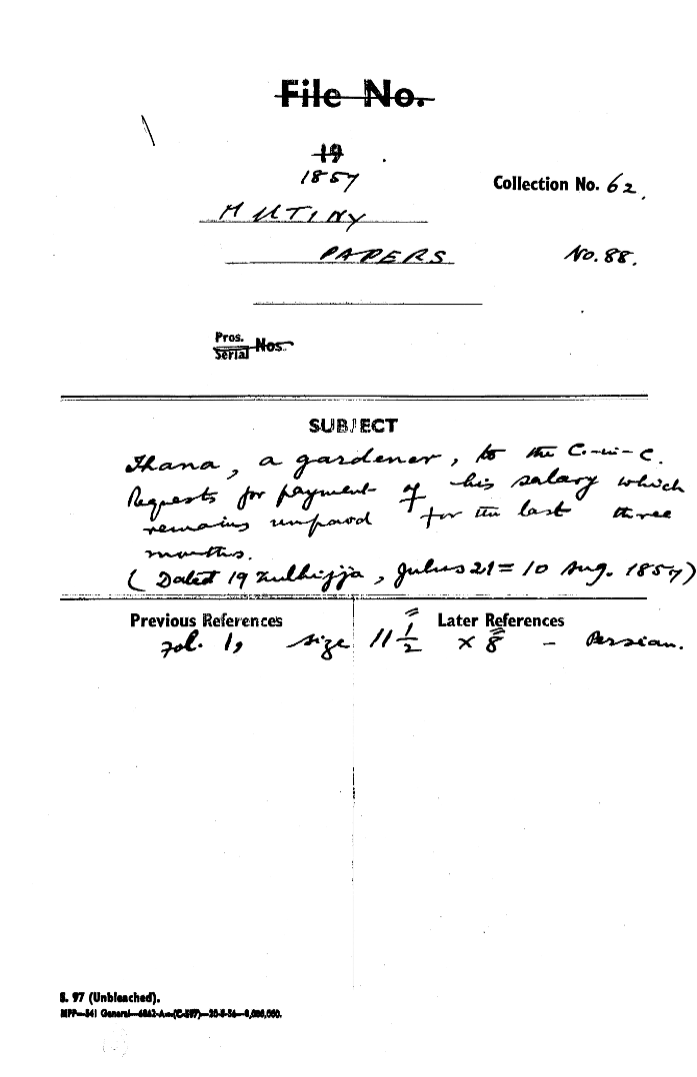 File No.
19
1857
Collection No. 62.
MUTINY
PAPERS No. 88.
Pros.
Serial Nos
SUBJECT
Thana, a gardener, to the C-in-C.
Requests for payment of his salary which
remains unpaid for the last three
months.
( Dated 19 Zulhijja, Julus 21 = 10 Aug. 1857)
Previous References Later References
Fol. 1, size 11 1/2" x 8" - Persian.
S. 97 (Unbleached).
MFP—541 General—6862-A—(C-597)—20-8-56—8,000,000.